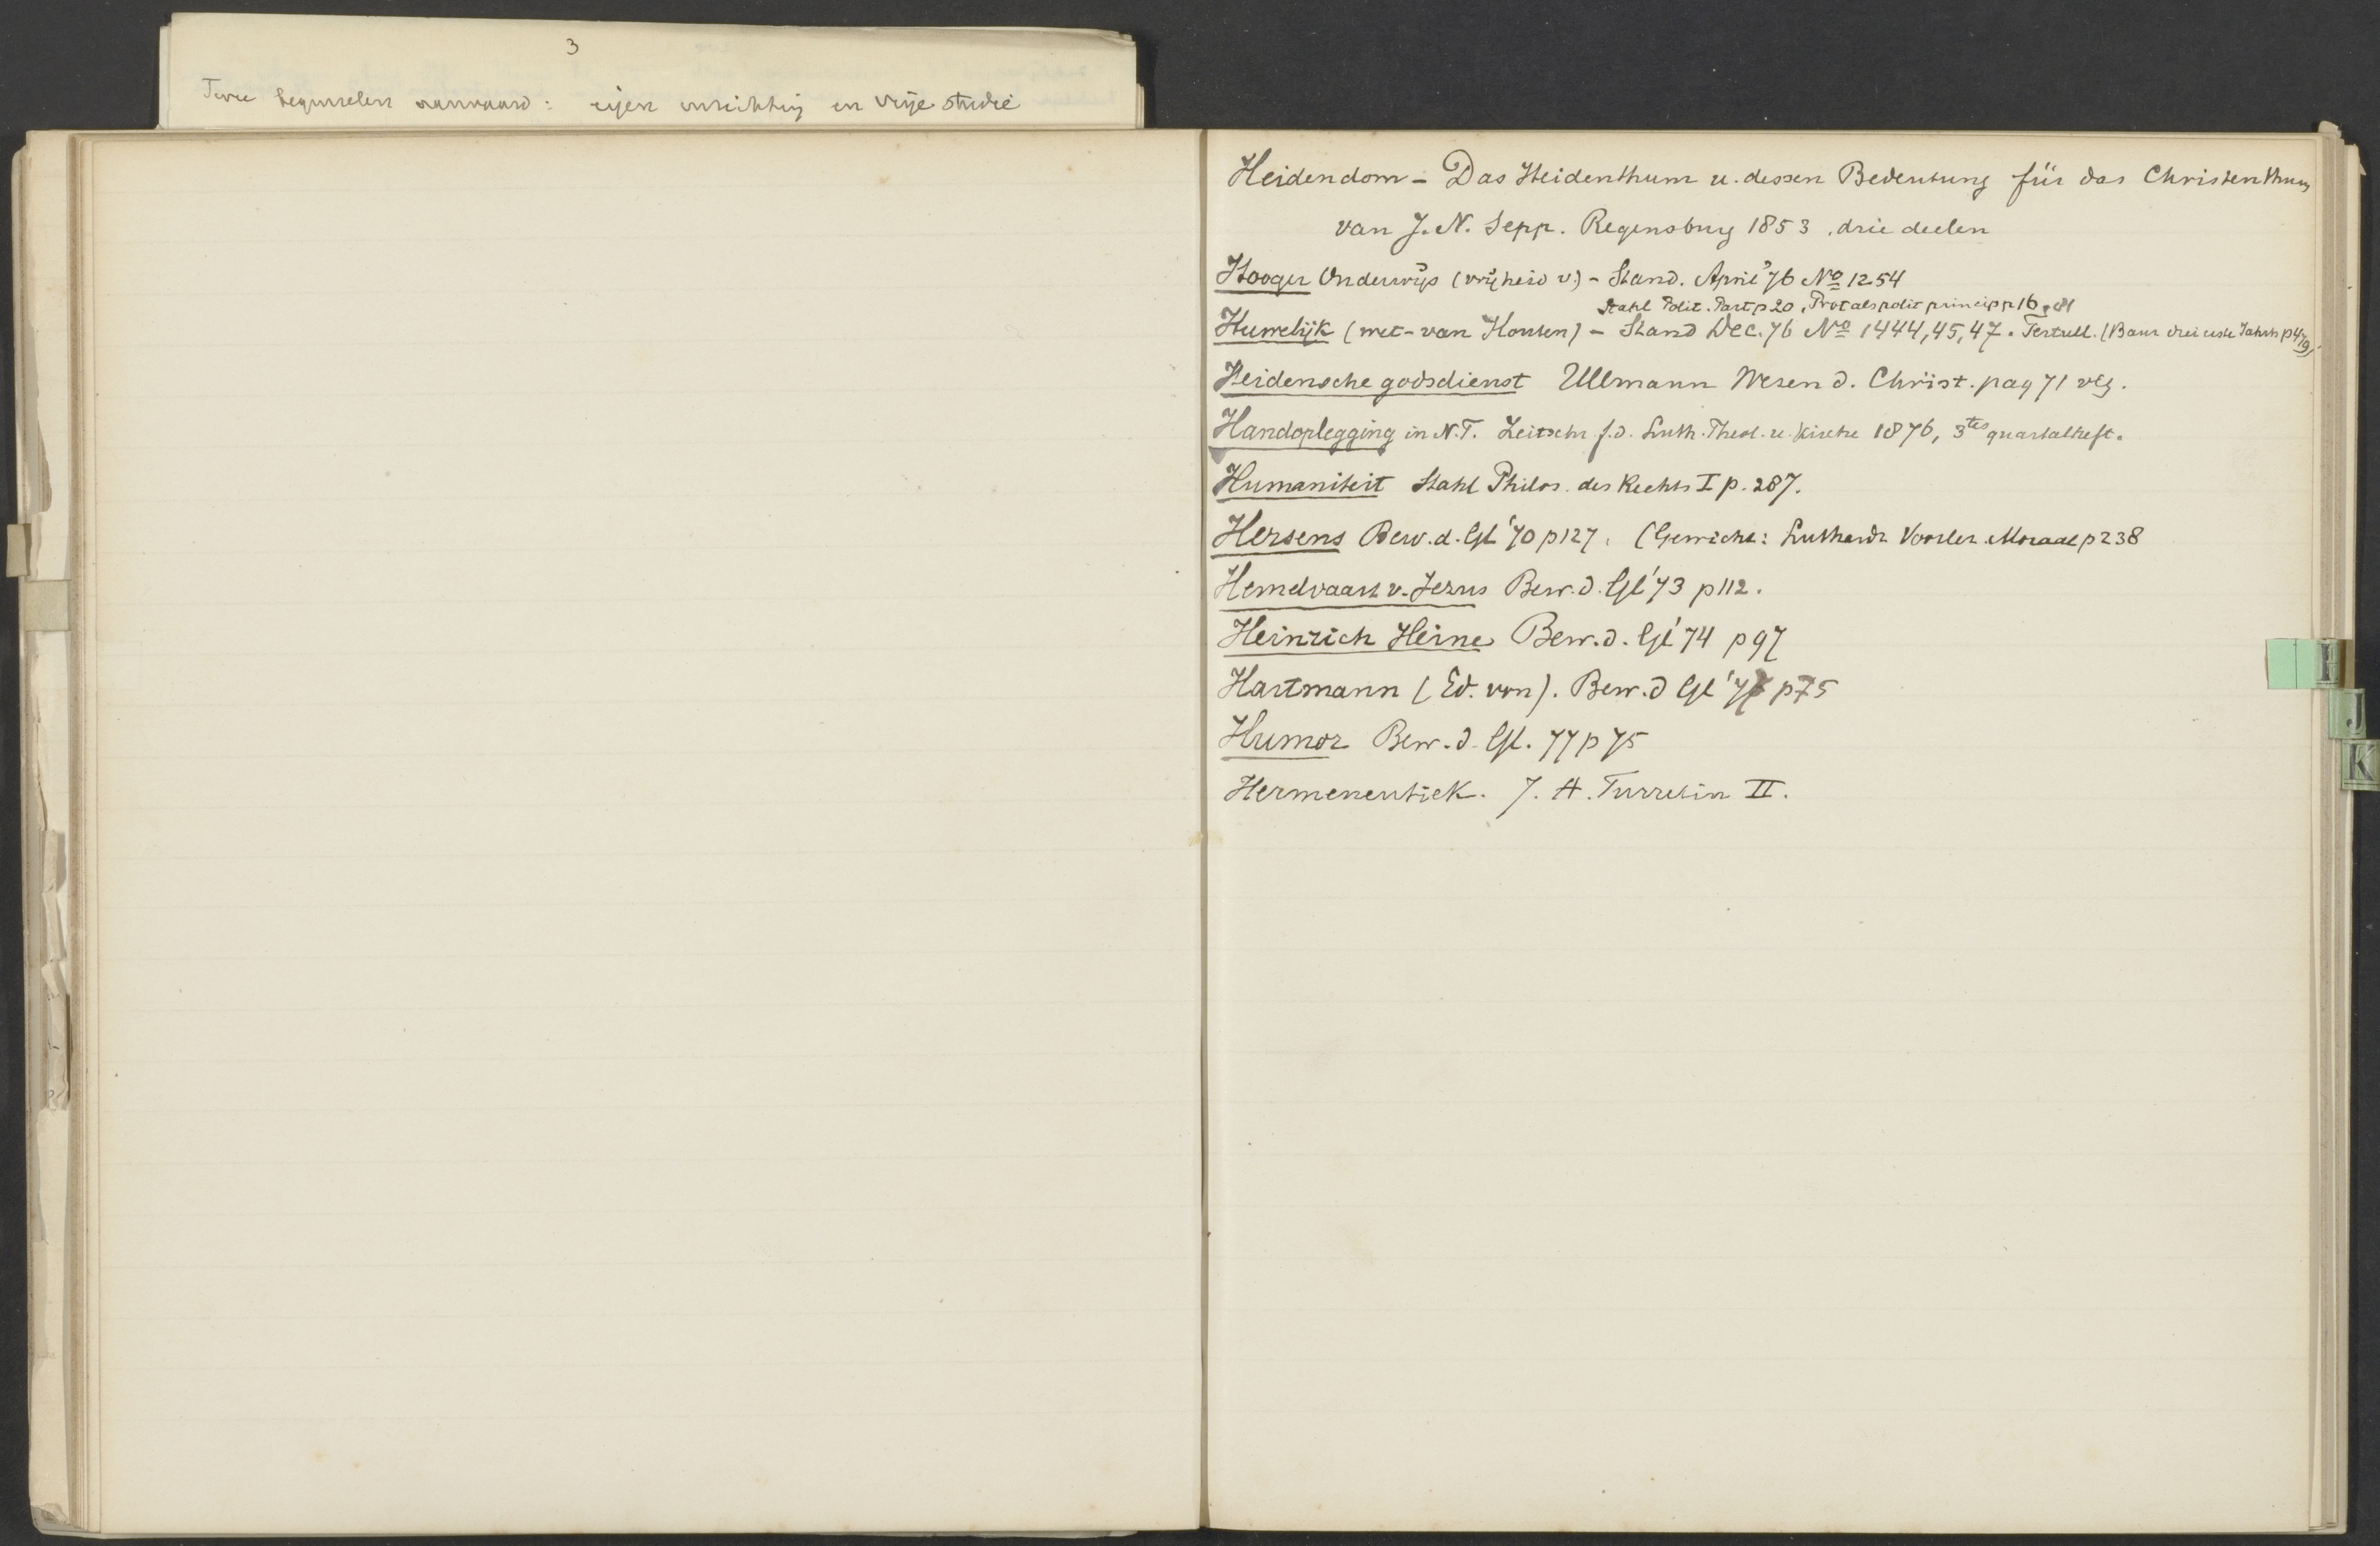 3
Twee beginselen aanvaard: eigen inrichting en vrije studie
Heidendom - Das Heidenthum u. dessen Bedeutung für das Christenthum
van J. N. Sepp. Regensburg 1853, drie deelen
Hooger Onderwijs (vrijheid v.) - Stand. April '76 No 1254
Stahl Polit. Part p 20, Prot als polit princip p 16, 81
Huwelijk (wet-van Houten) - Stand Dec. 76 No 1444, 45, 47. Tertull. (Baur drei erste Jahrh p 479)
Heidensche godsdienst Ullmann Wesen d. Christ. pag 71 vlg.
Handoplegging in N.T. Zeitschr f. d. Luth. Theol. u. Kirche 1876, 3tes quartalheft.
Humaniteit Stahl Philos. des Rechts I p. 287.
Hersens Bew. d. Gl '70 p 127. (Gewicht: Luthardt Voorlez. Moraal p 238
Hemelvaart v. Jezus Bew. d. Gl '73 p 112.
Heinrich Heine Bew. d. Gl '74 p 97
Hartmann (Ed. von). Bew. d Gl '77 p 75
Humor Bew. d. Gl. 77 p 75
Hermeneutiek. J. A. Turretin II.
H
J
K